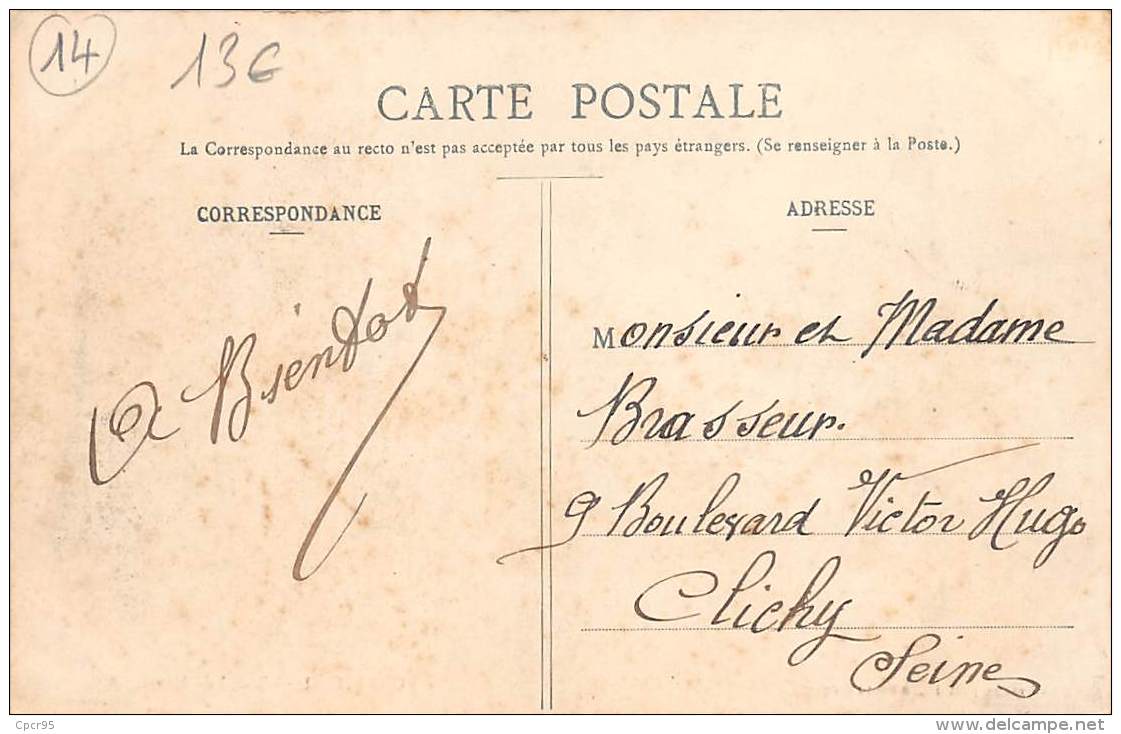 14
13€
CARTE POSTALE
La Correspondance au recto n'est pas acceptée par tous les pays étrangers. (Se renseigner à la Poste.)
CORRESPONDANCE
A Bientot
ADRESSE
Monsieur et Madame
Brasseur.
9 Boulevard Victor Hugo
Clichy
Seine
Cpcr95
www.delcampe.net